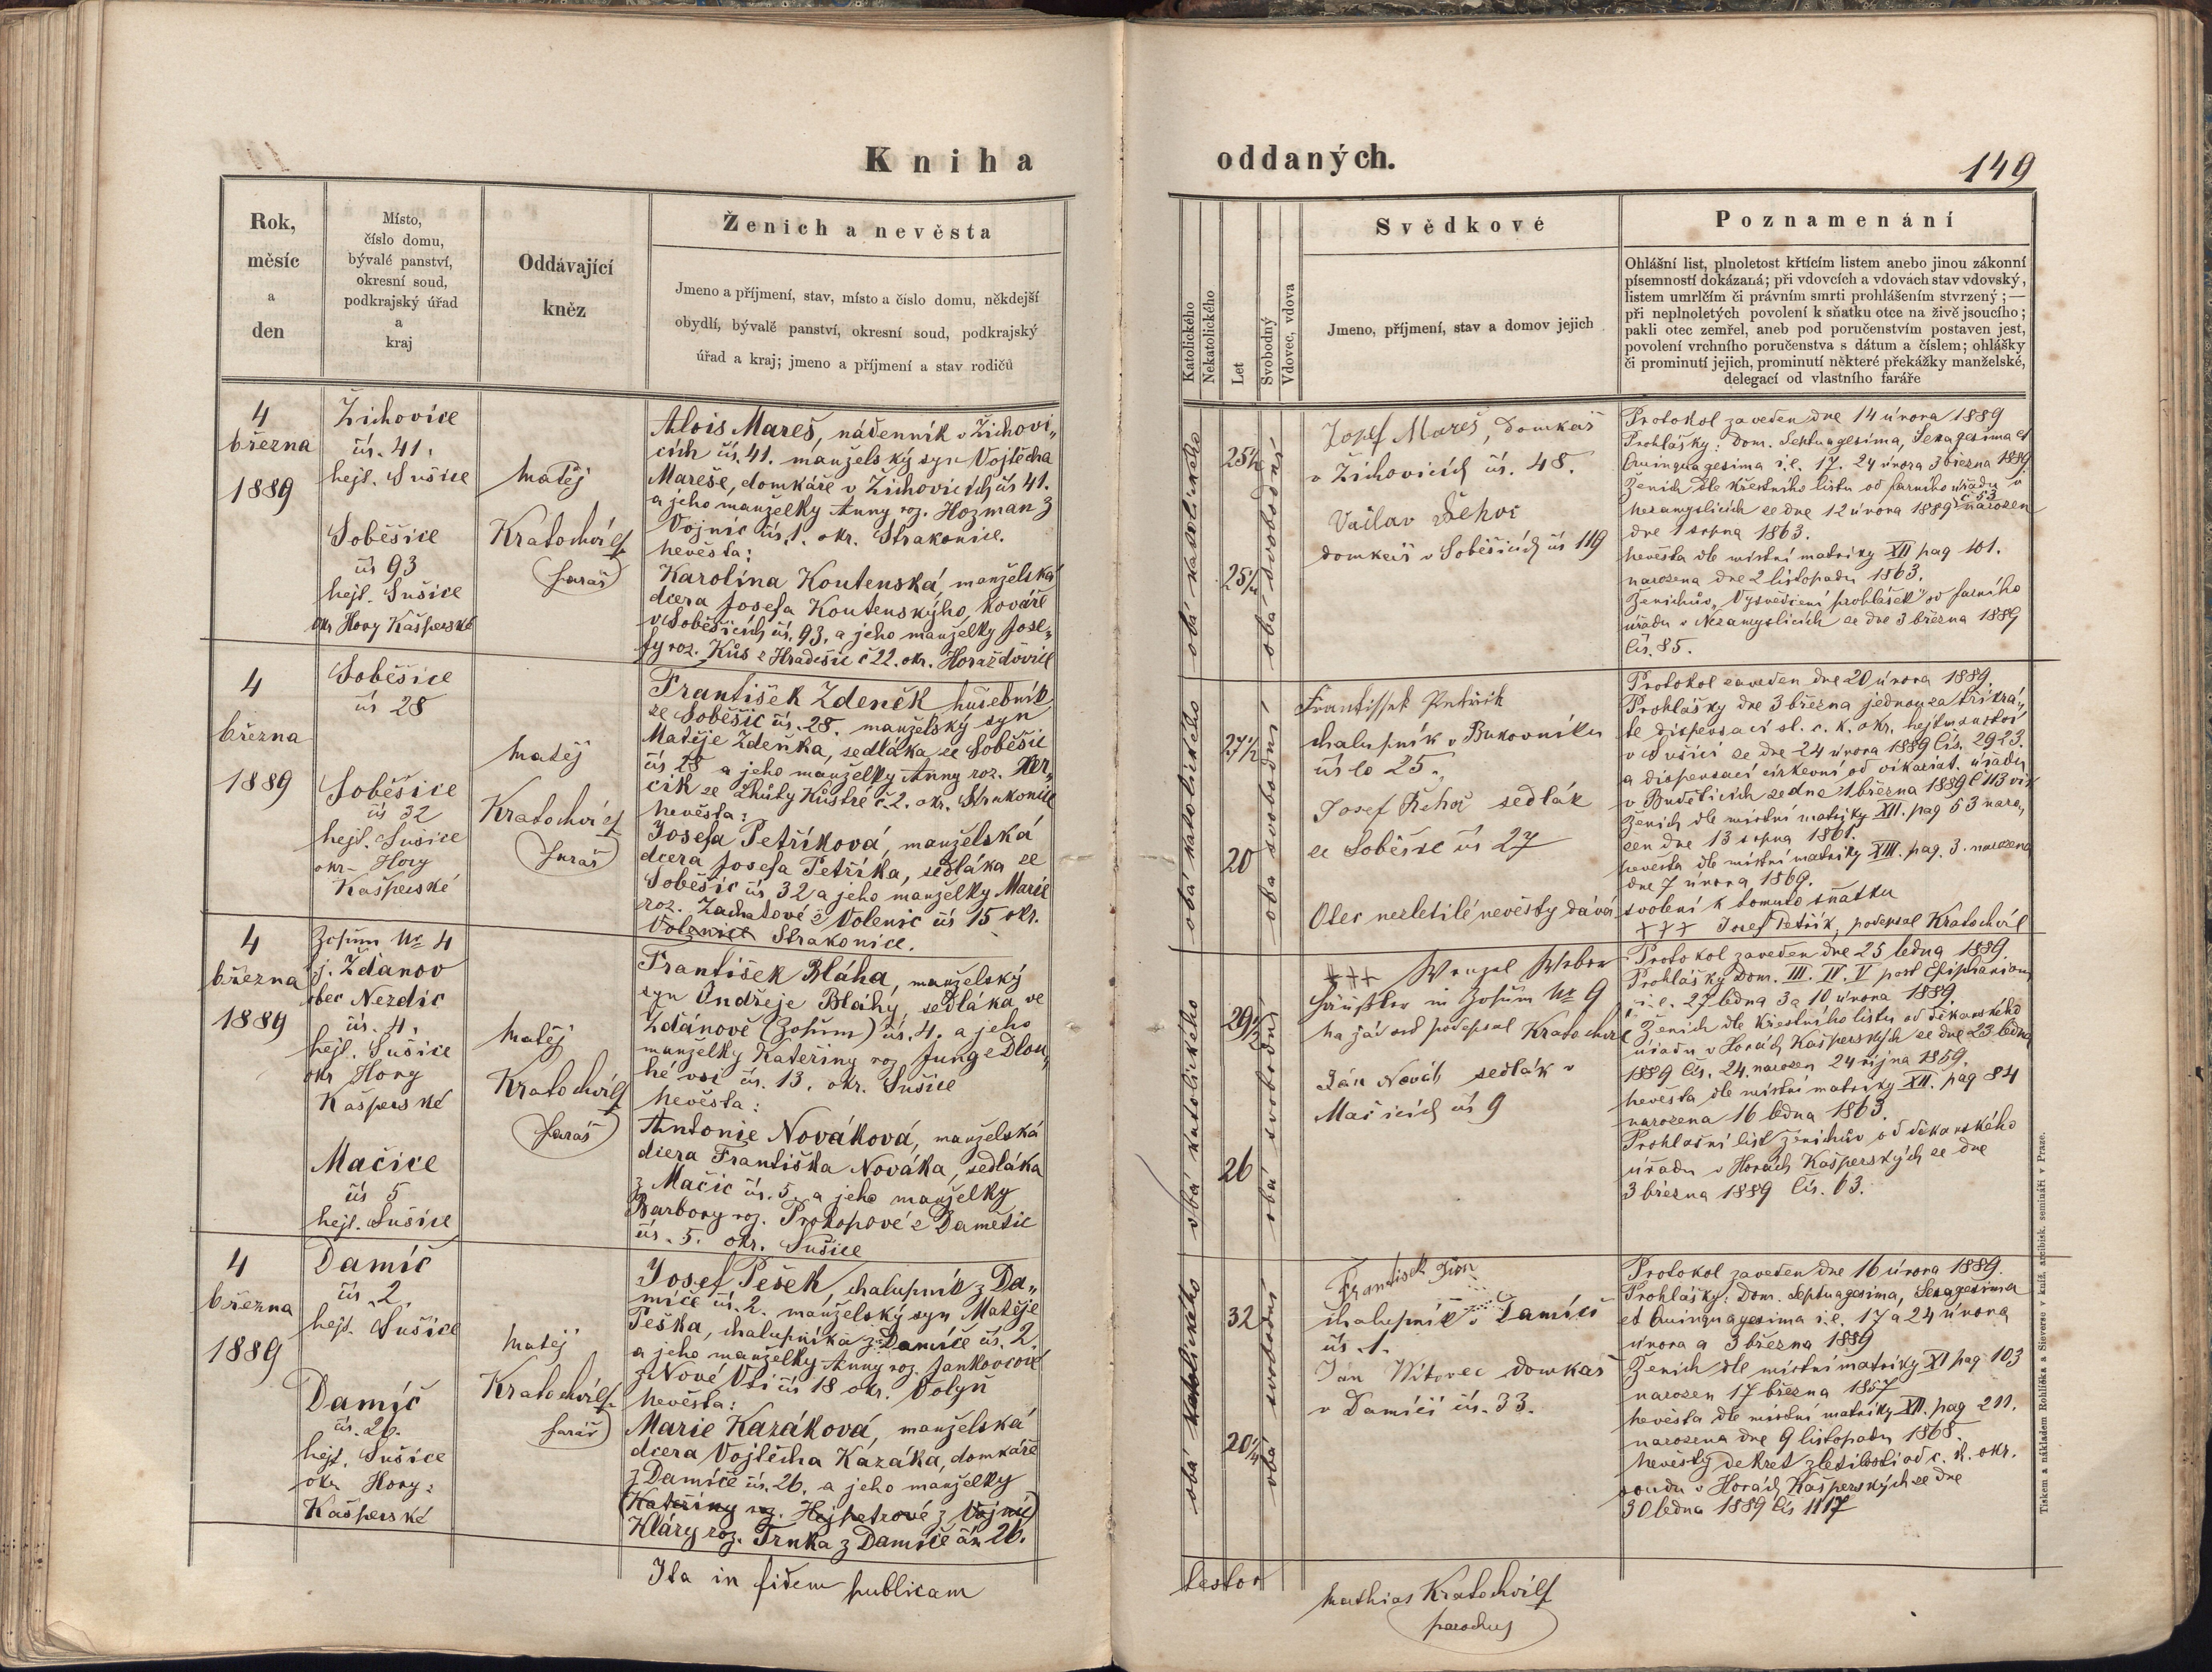 Kniha oddaných.
149
Rok,
měsíc
a
den
Místo,
číslo domu,
bývalé panství,
okresní soud,
podkrajský úřad
a
kraj
Oddávající
kněz
Ženich a nevěsta
Jmeno a příjmení, stav, místo a číslo domu, někdejší
obydlí, bývalé panství, okresní soud, podkrajský
úřad a kraj; jmeno a příjmení a stav rodičů
Katolického
Nekatolického
Let
Svobodný
Vdovec, vdova
Svědkové
Jmeno, příjmení, stav a domov jejich
Poznamenání
Ohlášní list, plnoletost křticím listem anebo jinou zákonní
písemností dokázaná; při vdovcích a vdovách stav vdovský,
listem umrlčím či právním smrti prohlášením stvrzený; —
při neplnoletých povolení k sňatku otce na živě jsoucího;
pakli otec zemřel, aneb pod poručenstvím postaven jest,
povolení vrchního poručenstva s dátum a číslem; ohlášky
či prominutí jejich, prominutí některé překážky manželské,
delegací od vlastního faráře
4
března
1889
Žichovice
čís. 41.
hejt. Sušice
Soběšice
čís 93
hejt. Sušice
okr Hory Kašperské
Matěj
Kratochvíl
farář
Alois Mareš, nádenník v Žichovi„
cích čís. 41. manželský syn Vojtěcha
Mareše, domkáře v Žichovicích čís 41.
a jeho manželky Anny roz. Hozman z
Vojnic čís. 1. okr. Strakonice.
nevěsta:
Karolína Koutenská, manželská
dcera Josefa Koutenského, kováře
v Soběšicích čís. 93. a jeho manželky Jose„
fy roz. Kůs z Hradešic č 22. okr. Horažďovice
obá katolického
25½
25¼
obá svobodní
Josef Mareš, domkář
v Žichovicích čís. 48.
Václav Řehoř
domkář v Soběšicích čís 119
Protokol zaveden dne 14 února 1889
Prohlášky: Dom. Septuagesima, Sexagesima et
Quinquagesima i.e. 17. 24 února 3 března 1889.
Ženich dle křestního listu od farního úřadu v
Nezamyslicích ze dne 12 února 1889 č 53 narozen
dne 1 srpna 1863.
nevěsta dle místní matriky XII pag 101.
narozena dne 2 listopadu 1863.
Ženichův „Vysvědčení prohlášek" od farního
úřadu v Nezamyslicích ze dne 3 března 1889
čís. 85.
4
března
1889
Soběšice
čís 28
Soběšice
čís 32
hejt. Sušice
okr. Hory
Kašperské
Matěj
Kratochvíl
farář
František Zdeněk hudebník
ze Soběšic čís. 28. manželský syn
Matěje Zdeňka, sedláka ze Soběšic
čís 28 a jeho manželky Anny roz. Her„
cik ze Lhůty Kůstré č. 2. okr. Strakonice
nevěsta:
Josefa Petříková, manželská
dcera Josefa Petříka, sedláka ze
Soběšic čís 32 a jeho manželky Marie
roz. Zachatové z Volenic čís 15 okr.
Volenice Strakonice.
obá katolického
27½
20
oba svobodní
Frantissek Petřik
chalupník v Bukovníku
číslo 25.
Josef Řehoř sedlák
ze Soběšic čís 27
Otec nezletilé nevěsty dává svolení k tomuto sňatku
+++ Josef Petřík, podepsal Kratochvíl
Protokol zaveden dne 20 února 1889.
Prohlášky dne 3 března jednou za třikrá„
te dispensací sl. c. k. okr. hejtmanství
v Sušici ze dne 24 února 1889 čís. 2923.
a dispensací církevní od vikariat. úřadu
v Budětících ze dne 1 března 1889 č 113 vik
Ženich dle místní matriky XII. pag 53 naro„
zen dne 13 srpna 1861.
nevěsta dle místní matriky XIII. pag. 3. narozena
dne 7 února 1869.
4
března
1889
Zosum Nr 4
j. Ždánov
obec Nezdic
čís. 4.
hejt. Sušice
okr Hory
Kašperské
Mačice
čís 5
hejt. Sušice
Matěj
Kratochvíl
farář
František Bláha, manželský
syn Ondřeje Bláhy, sedláka ve
Ždánově (Zosum) čís. 4. a jeho
manželky Kateřiny roz Jung z Dlou„
hé vsi čís. 13. okr. Sušice
nevěsta:
Antonie Nováková, manželská
dcera Františka Nováka, sedláka
z Mačic čís. 5. a jeho manželky
Barbory roz. Prokopové z Damětic
čís. 5. okr. Sušice
obá katolického
29½
26
obá svobodní
+++ Wenzel Weber
Häußler in Zosum Nr 9
na žádost podepsal Kratochvíl
Ján Novák sedlák v
Mačicích čís 9
Protokol zaveden dne 25 ledna 1889.
Prohlášky Dom. III. IV. V post Epiphaniam
i.e. 27 ledna 3 a 10 února 1889.
Ženich dle křestního listu od děkanského
úřadu v Horách Kašperských ze dne 23 ledna
1889 čís. 24. narozen 24 října 1859.
nevěsta dle místní matriky XII. pag 84
narozena 16 ledna 1863.
Prohlašní list ženichův od děkanského
úřadu v Horách Kašperských ze dne
3 března 1889 čís. 63.
4
března
1889
Damíč
čís. 2.
hejt. Sušice
Damíč
čís. 26.
hejt. Sušice
okr. Hory
Kašperské
Matěj
Kratochvíl
farář
Josef Pešek, chalupník z Da„
míče čís. 2. manželský syn Matěje
Peška, chalupníka z Damíče čís. 2.
a jeho manželky Anny roz. Jankovcové
z Nové Vsi čís 18 okr. Volyň
nevěsta:
Marie Kazáková, manželská
dcera Vojtěcha Kazáka, domkáře
z Damíče čís. 26. a jeho manželky
(Kateřiny roz. Hejpetrové z Vojnic)
Kláry roz. Trnka z Damíče čís. 26.
obá katolického
32
20¼
obá svobodní
Frantisek
chalupník v Damíči
čís. 1.
Ján Witovec domkař
v Damíči čís. 33.
Protokol zaveden dne 16 února 1889.
Prohlášky: Dom. Septuagesima, Sexagesima
et Quinquagesima i.e. 17 a 24 února
února a 3 března 1889
Ženich dle místní matriky XI pag 103
narozen 17 března 1857
nevěsta dle místní matriky XII. pag 211.
narozena dne 9 listopadu 1868.
nevěsty dekret zletilosti od c. k. okr.
soudu v Horách Kašperských ze dne
30 ledna 1889 čís 1117
Ita in fidem publicam testor
Mathias Kratochvíl
parochus
Tiskem a nákladem Rohlíčka a Sieverse v kníž. arcibisk. semináři v Praze.